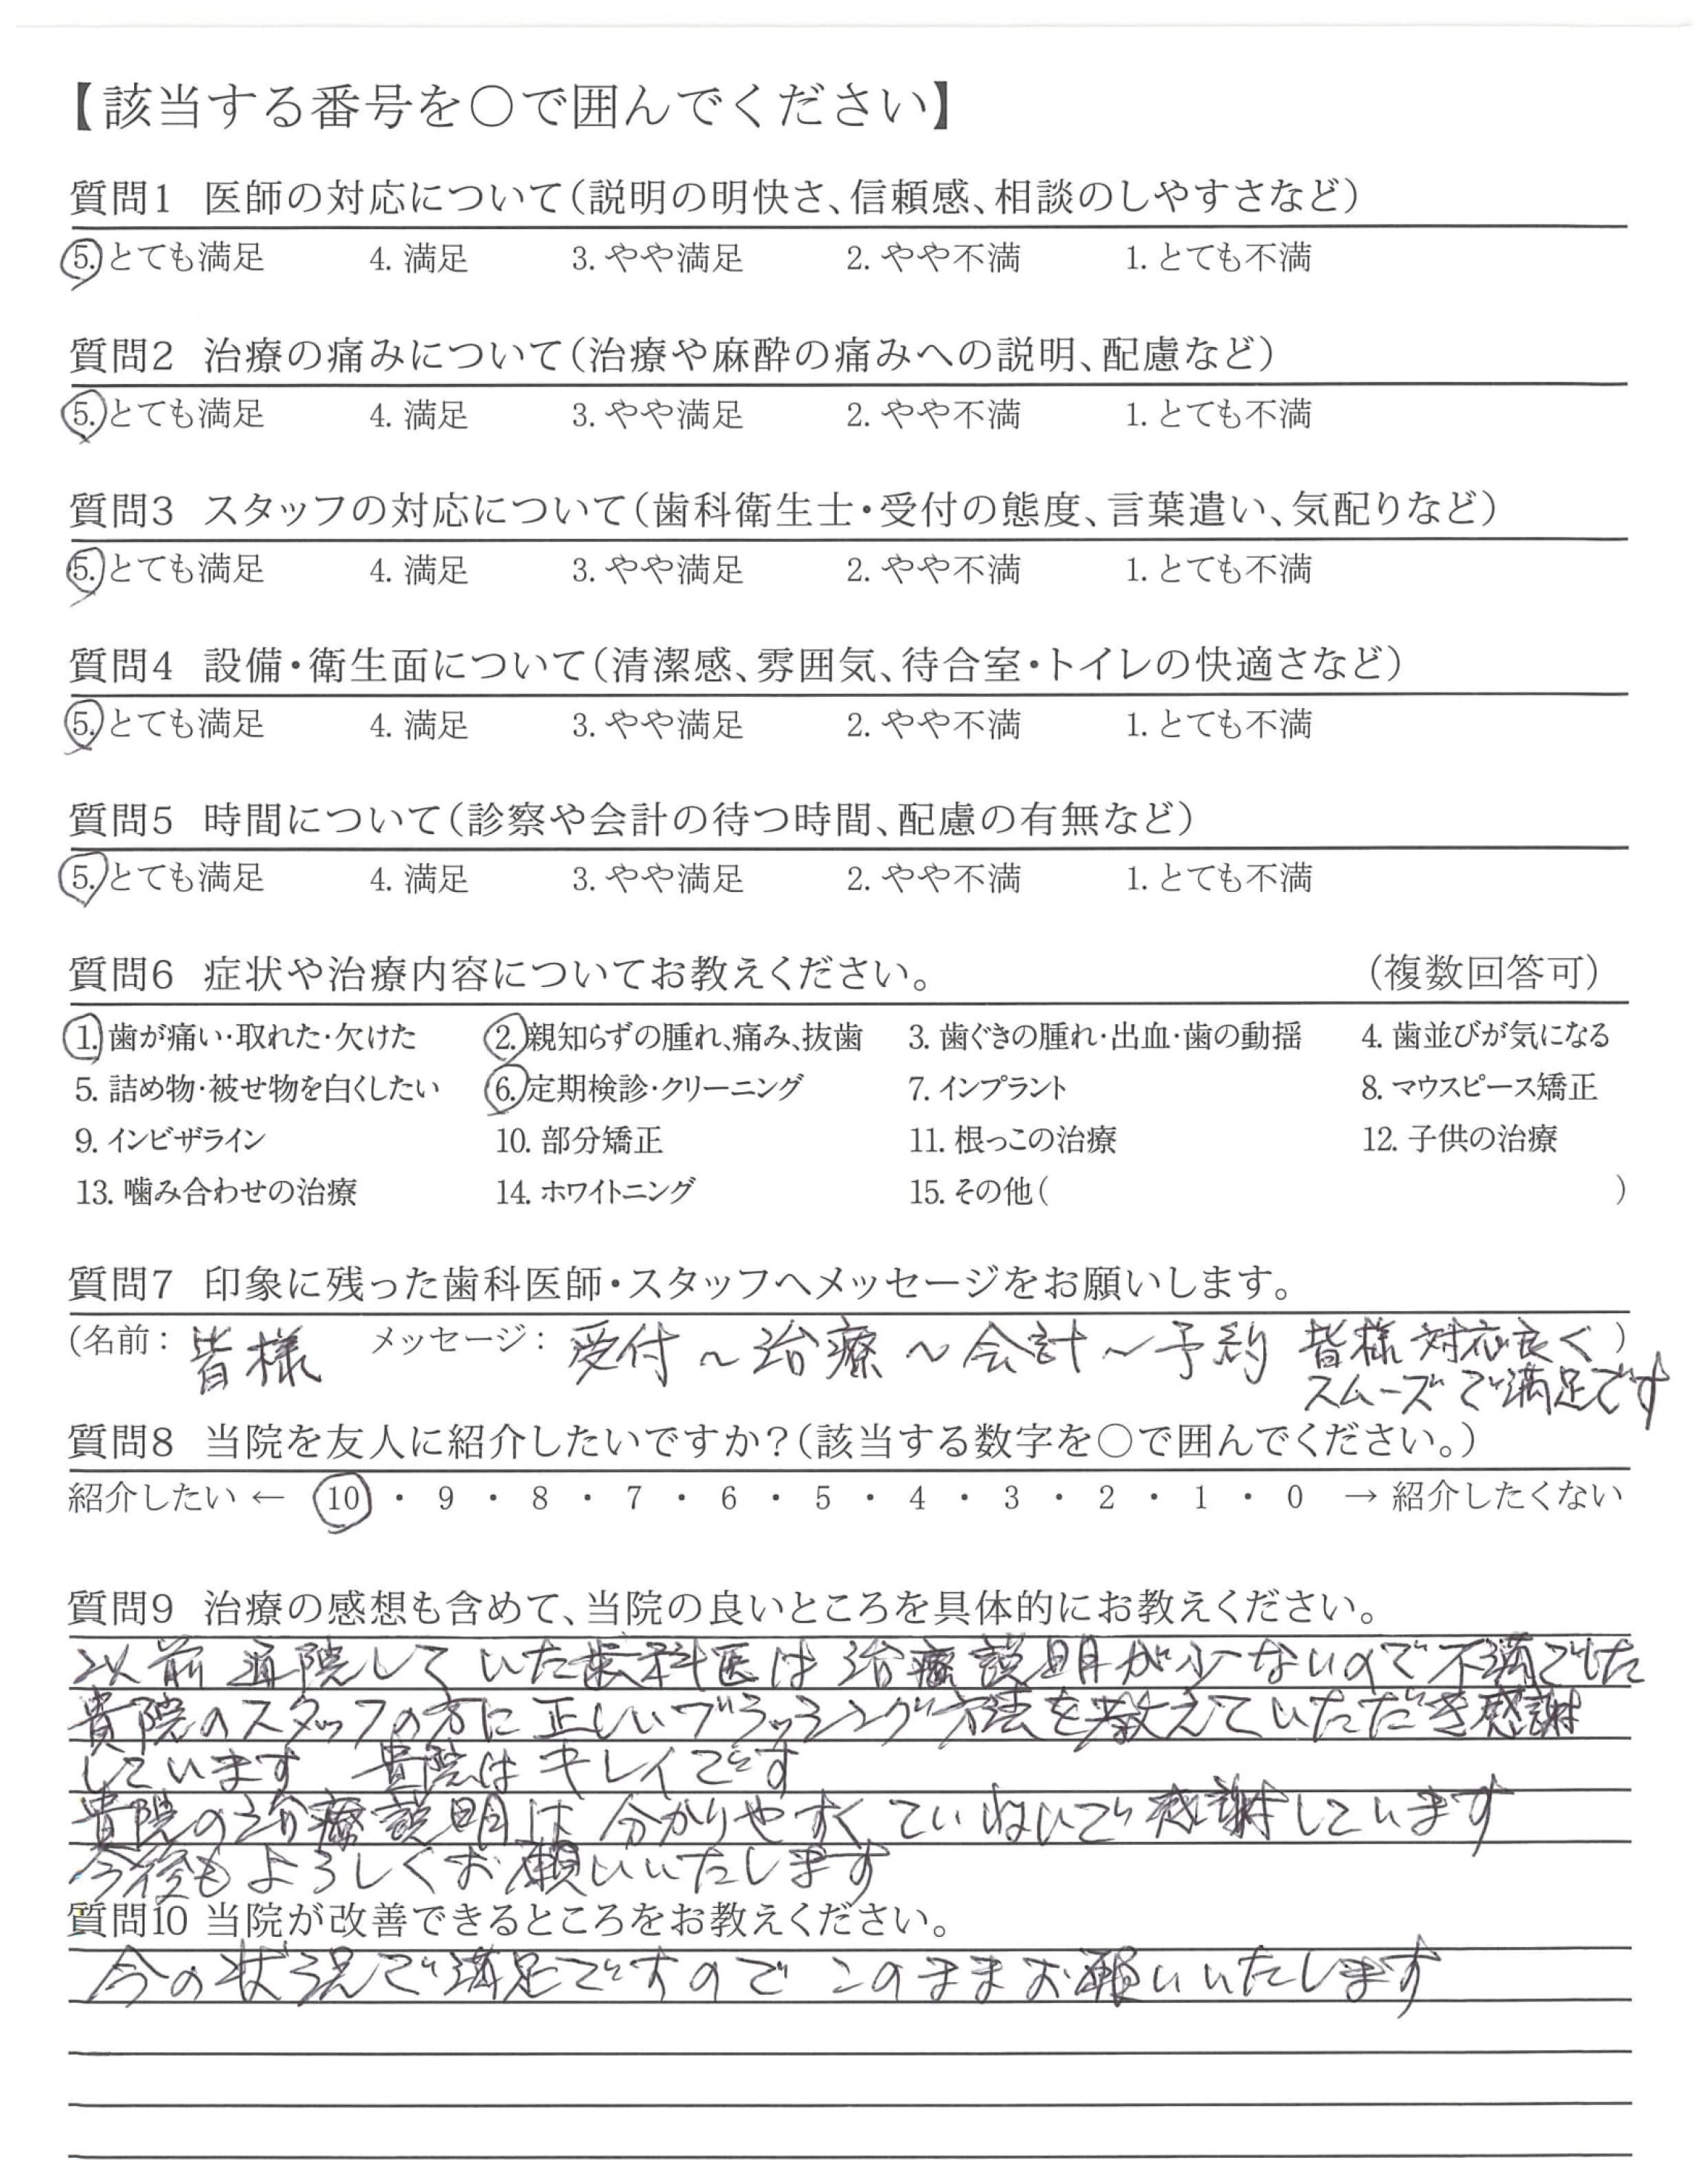 【該当する番号を○で囲んでください】
質問1 医師の対応について（説明の明快さ、信頼感、相談のしやすさなど）
5. とても満足 4. 満足 3. やや満足 2. やや不満 1. とても不満
質問2 治療の痛みについて（治療や麻酔の痛みへの説明、配慮など）
5. とても満足 4. 満足 3. やや満足 2. やや不満 1. とても不満
質問3 スタッフの対応について（歯科衛生士・受付の態度、言葉遣い、気配りなど）
5. とても満足 4. 満足 3. やや満足 2. やや不満 1. とても不満
質問4 設備・衛生面について（清潔感、雰囲気、待合室・トイレの快適さなど）
5. とても満足 4. 満足 3. やや満足 2. やや不満 1. とても不満
質問5 時間について（診察や会計の待つ時間、配慮の有無など）
5. とても満足 4. 満足 3. やや満足 2. やや不満 1. とても不満
質問6 症状や治療内容についてお教えください。 （複数回答可）
1. 歯が痛い・取れた・欠けた 2. 親知らずの腫れ、痛み、抜歯 3. 歯ぐきの腫れ・出血・歯の動揺 4. 歯並びが気になる
5. 詰め物・被せ物を白くしたい 6. 定期検診・クリーニング 7. インプラント 8. マウスピース矯正
9. インビザライン 10. 部分矯正 11. 根っこの治療 12. 子供の治療
13. 噛み合わせの治療 14. ホワイトニング 15. その他（ ）
質問7 印象に残った歯科医師・スタッフへメッセージをお願いします。
（名前： 皆様 メッセージ： 受付～治療～会計～予約 皆様対応良く）
スムーズで満足です
質問8 当院を友人に紹介したいですか？（該当する数字を○で囲んでください。）
紹介したい ← 10 ・ 9 ・ 8 ・ 7 ・ 6 ・ 5 ・ 4 ・ 3 ・ 2 ・ 1 ・ 0 → 紹介したくない
質問9 治療の感想も含めて、当院の良いところを具体的にお教えください。
以前通院していた歯科医は治療説明が少ないので不満でした
貴院のスタッフの方に正しいブラッシング方法を教えていただき感謝
しています 貴院はキレイです
貴院の治療説明は分かりやすくていねいで感謝しています
今後もよろしくお願いいたします
質問10 当院が改善できるところをお教えください。
今の状況で満足ですので このままお願いいたします